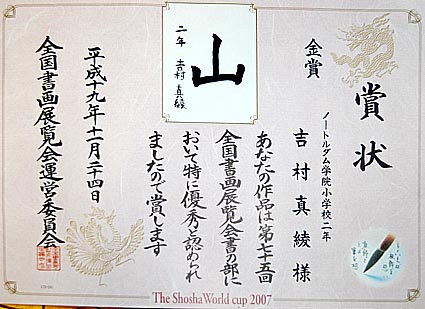 賞状
金賞
ノートルダム学院小学校二年
吉村真綾様
山
二年 吉村真綾
あなたの作品は第七十五回
全国書画展覧会書の部に
おいて特に優秀と認められ
ましたので賞します
平成十九年十一月二十四日
全国書画展覧会運営委員会
The Shosha World cup 2007